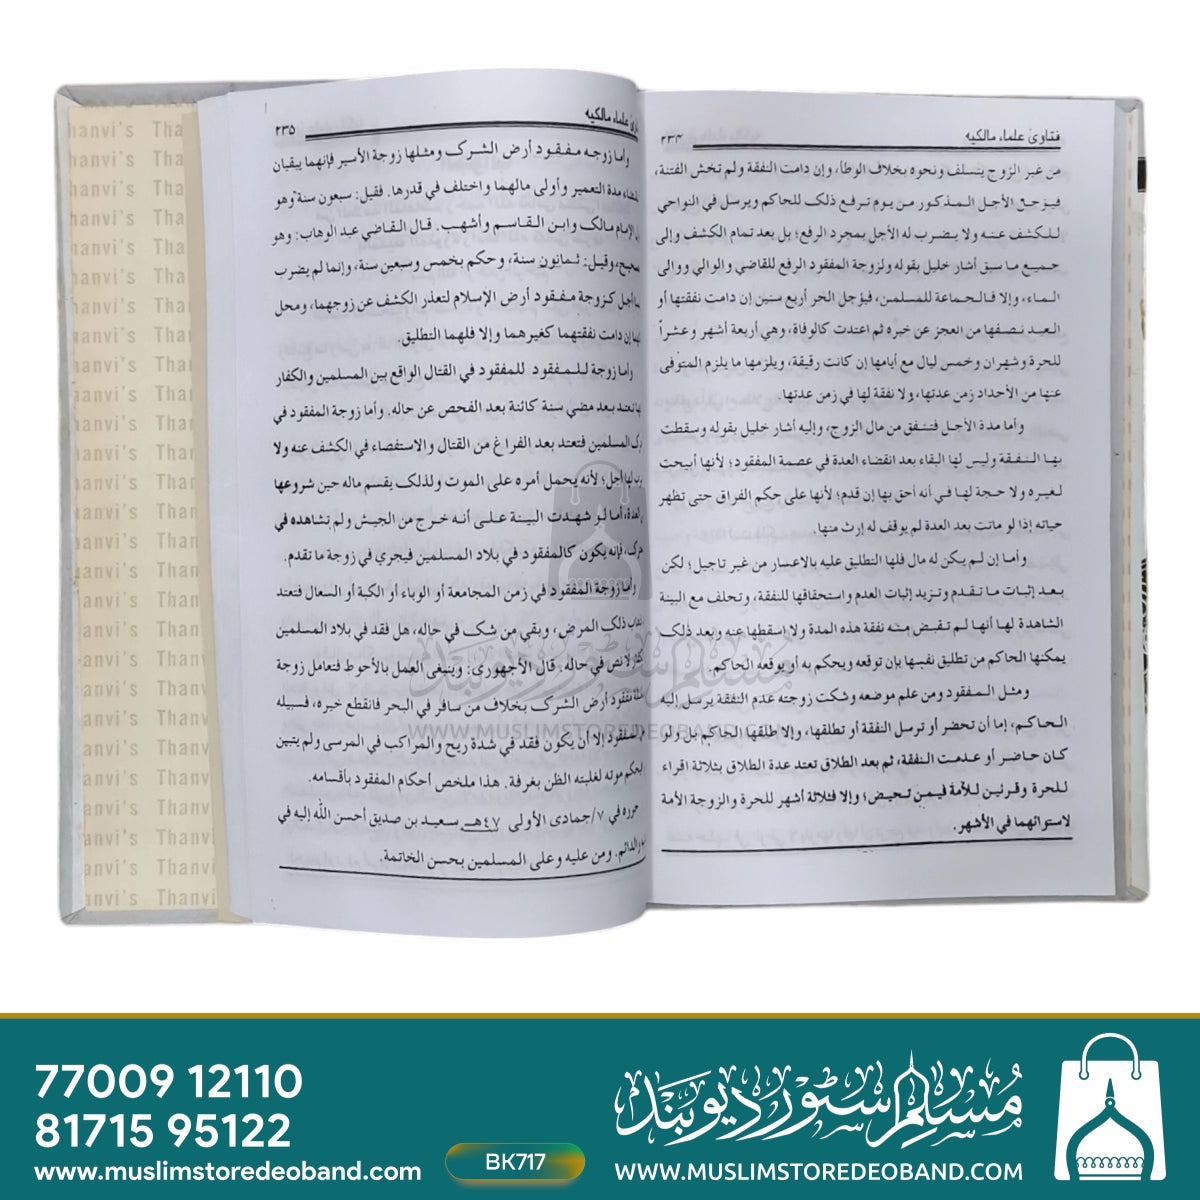 فتاوىٰ علماء مالكيه
٢٣٤
من غير الزوج يتسلف ونحوه بخلاف الوطأ، وإن دامت النفقة ولم تخش الفتنة،
فيؤجل الأجل المذكور من يوم ترفع ذلك للحاكم ويرسل في النواحي
للكشف عنه ولا يضرب له الأجل بمجرد الرفع؛ بل بعد تمام الكشف وإلى
جميع ما سبق أشار خليل بقوله ولزوجة المفقود الرفع للقاضي والوالي ووالى
الماء، وإلا فالجماعة المسلمين، فيؤجل الحر أربع سنين إن دامت نفقتها أو
العبد نصفها من العجز عن خبره ثم اعتدت كالوفاة، وهي أربعة أشهر وعشراً
للحرة وشهران وخمس ليال مع أيامها إن كانت رقيقة، ويلزمها ما يلزم المتوفى
عنها من الأحداد زمن عدتها، ولا نفقة لها في زمن عدتها.
وأما مدة الأجل فتنفق من مال الزوج، وإليه أشار خليل بقوله وسقطت
بها النفقة وليس لها البقاء بعد انقضاء العدة في عصمة المفقود؛ لأنها أبيحت
لغيره ولا حجة لها في أنه أحق بها إن قدم؛ لأنها على حكم الفراق حتى تظهر
حياته إذا لو ماتت بعد العدة لم يوقف له إرث منها.
وأما إن لم يكن له مال فلها التطليق عليه بالاعسار من غير تاجيل؛ لكن
بعد إثبات ما تقدم وتزيد إثبات العدم واستحقاقها للنفقة، وتحلف مع البينة
الشاهدة لها أنها لم تقبض منه نفقة هذه المدة ولا إسقطها عنه وبعد ذلك
يمكنها الحاكم من تطليق نفسها بإن توقعه ويحكم به أو يوقعه الحاكم.
ومثل المفقود ومن علم موضعه وشكت زوجته عدم النفقة يرسل إليه
الحاكم، إما أن تحضر أو ترسل النفقة أو تطلقها، وإلا طلقها الحاكم بل ولو
كان حاضر أو عدمت النفقة، ثم بعد الطلاق تعتد عدة الطلاق بثلاثة اقراء
للحرة وقرئين للأمة فيمن تحيض؛ وإلا فثلاثة أشهر للحرة والزوجة الأمة
لاستوائهما في الأشهر.
علماء مالكيه
٢٣٥
وأما زوجه مفقود أرض الشرك ومثلها زوجة الأسير فإنهما يبقيان
مدة التعمير وأولى مالهما واختلف في قدرها. فقيل: سبعون سنة وهو
الإمام مالك وابن القاسم وأشهب. قال القاضي عبد الوهاب: وهو
صحيح، وقيل: ثمانون سنة، وحكم بخمس وسبعين سنة، وإنما لم يضرب
أجل كزوجة مفقود أرض الإسلام لتعذر الكشف عن زوجهما، ومحل
إن دامت نفقتهما كغيرهما وإلا فلهما التطليق.
وأما زوجة للمفقود للمفقود في القتال الواقع بين المسلمين والكفار
تعتد بعد مضي سنة كائنة بعد الفحص عن حاله. وأما زوجة المفقود في
المسلمين فتعتد بعد الفراغ من القتال والاستفصاء في الكشف عنه ولا
لها أجل؛ لأنه يحمل أمره على الموت ولذلك يقسم ماله حين شروعها
العدة، أما لو شهدت البينة على أنه خرج من الجيش ولم تشاهده في
فإنه يكون كالمفقود في بلاد المسلمين فيجري في زوجة ما تقدم.
وأما زوجة المفقود في زمن المجامعة أو الوباء أو الكبة أو السعال فتعتد
ذلك المرض، وبقي من شك في حاله، هل فقد في بلاد المسلمين
لا نص في حاله. قال الأجهورى: وينبغى العمل بالأحوط فتعامل زوجة
مفقود أرض الشرك بخلاف من سافر في البحر فانقطع خبره، فسبيله
المفقود إلا أن يكون فقد في شدة ريح والمراكب في المرسى ولم يتبين
الحكم موته لغلبته الظن بغرقة. هذا ملخص أحكام المفقود بأقسامه.
حرره في ٧/جمادى الأولى ٤٧هـ سعيد بن صديق أحسن الله إليه في
والدائم. ومن عليه وعلى المسلمين بحسن الخاتمة.
Thanvi's
مسلم سٹور دیوبند
WWW.MUSLIMSTOREDEOBAND.COM
77009 12110
81715 95122
www.muslimstoredeoband.com
BK717
مسلم سٹور دیوبند
WWW.MUSLIMSTOREDEOBAND.COM